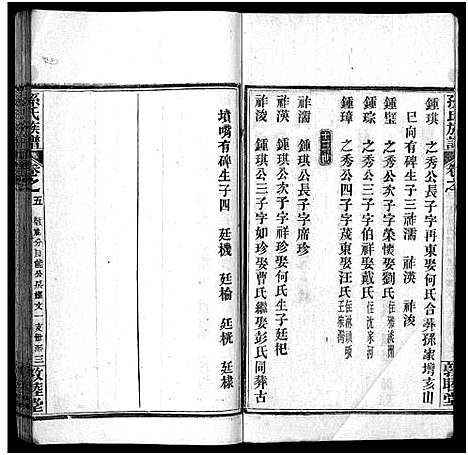 孫氏族譜
卷之
鍾琪 之秀公長子字再東娶何氏合葬孫家塆亥山
巳向有碑生子三 祚濡 祚渶 祚浚
鍾璧 之秀公次子字榮懷娶劉氏
鍾琮 之秀公三子字伯祥娶戴氏住沈家河
鍾璋 之秀公四子字茂東娶汪氏
十三世
祚濡 鍾琪公長子字席珍
祚渶 鍾琪公次子字祥珍娶何氏生子廷杞
祚浚 鍾琪公三子字如珍娶曹氏繼娶彭氏同葬古
敦睦堂
墳嘴有碑生子四 廷機 廷楡 廷桄 廷棣
孫氏族譜
卷之五
三 敦睦堂